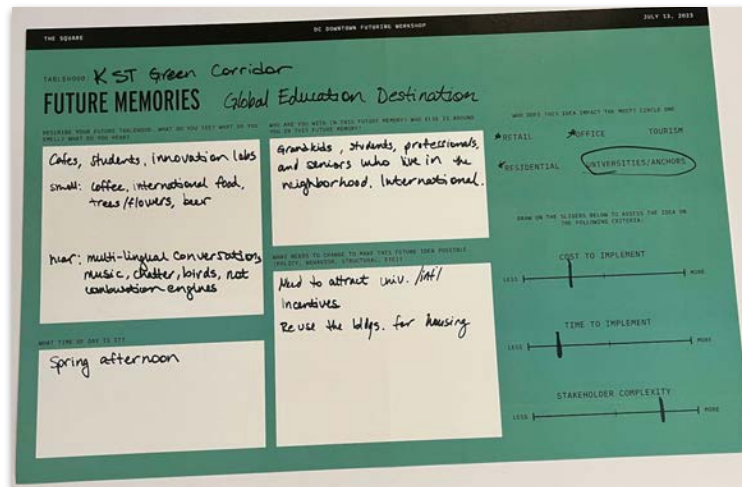 THE SQUARE
DC DOWNTOWN FUTURING WORKSHOP
JULY 13, 2023
TABLEHOOD: K ST Green Corridor
FUTURE MEMORIES Global Education Destination
DESCRIBE YOUR FUTURE TABLEHOOD. WHAT DO YOU SEE? WHAT DO YOU
SMELL? WHAT DO YOU HEAR?
Cafes, students, innovation labs
smell: coffee, international food,
trees/flowers, beer
hear: multi-lingual conversation,
music, chatter, birds, not
combustion engines
WHAT TIME OF DAY IS IT?
Spring afternoon
WHO ARE YOU WITH IN THIS FUTURE MEMORY? WHO ELSE IS AROUND
YOU IN THIS FUTURE MEMORY?
Grandkids, students, professionals,
and seniors who live in the
neighborhood, International.
WHAT NEEDS TO CHANGE TO MAKE THIS FUTURE IDEA POSSIBLE
(POLICY, BEHAVIOR, STRUCTURAL, ETC)?
Need to attract univ. /int/
Incentives
Re use the bldgs. for housing
WHO DOES THIS IDEA IMPACT THE MOST? CIRCLE ONE
*RETAIL *OFFICE TOURISM
*RESIDENTIAL UNIVERSITIES/ANCHORS
DRAW ON THE SLIDERS BELOW TO ASSESS THE IDEA ON
THE FOLLOWING CRITERIA:
COST TO IMPLEMENT
LESS MORE
TIME TO IMPLEMENT
LESS MORE
STAKEHOLDER COMPLEXITY
LESS MORE